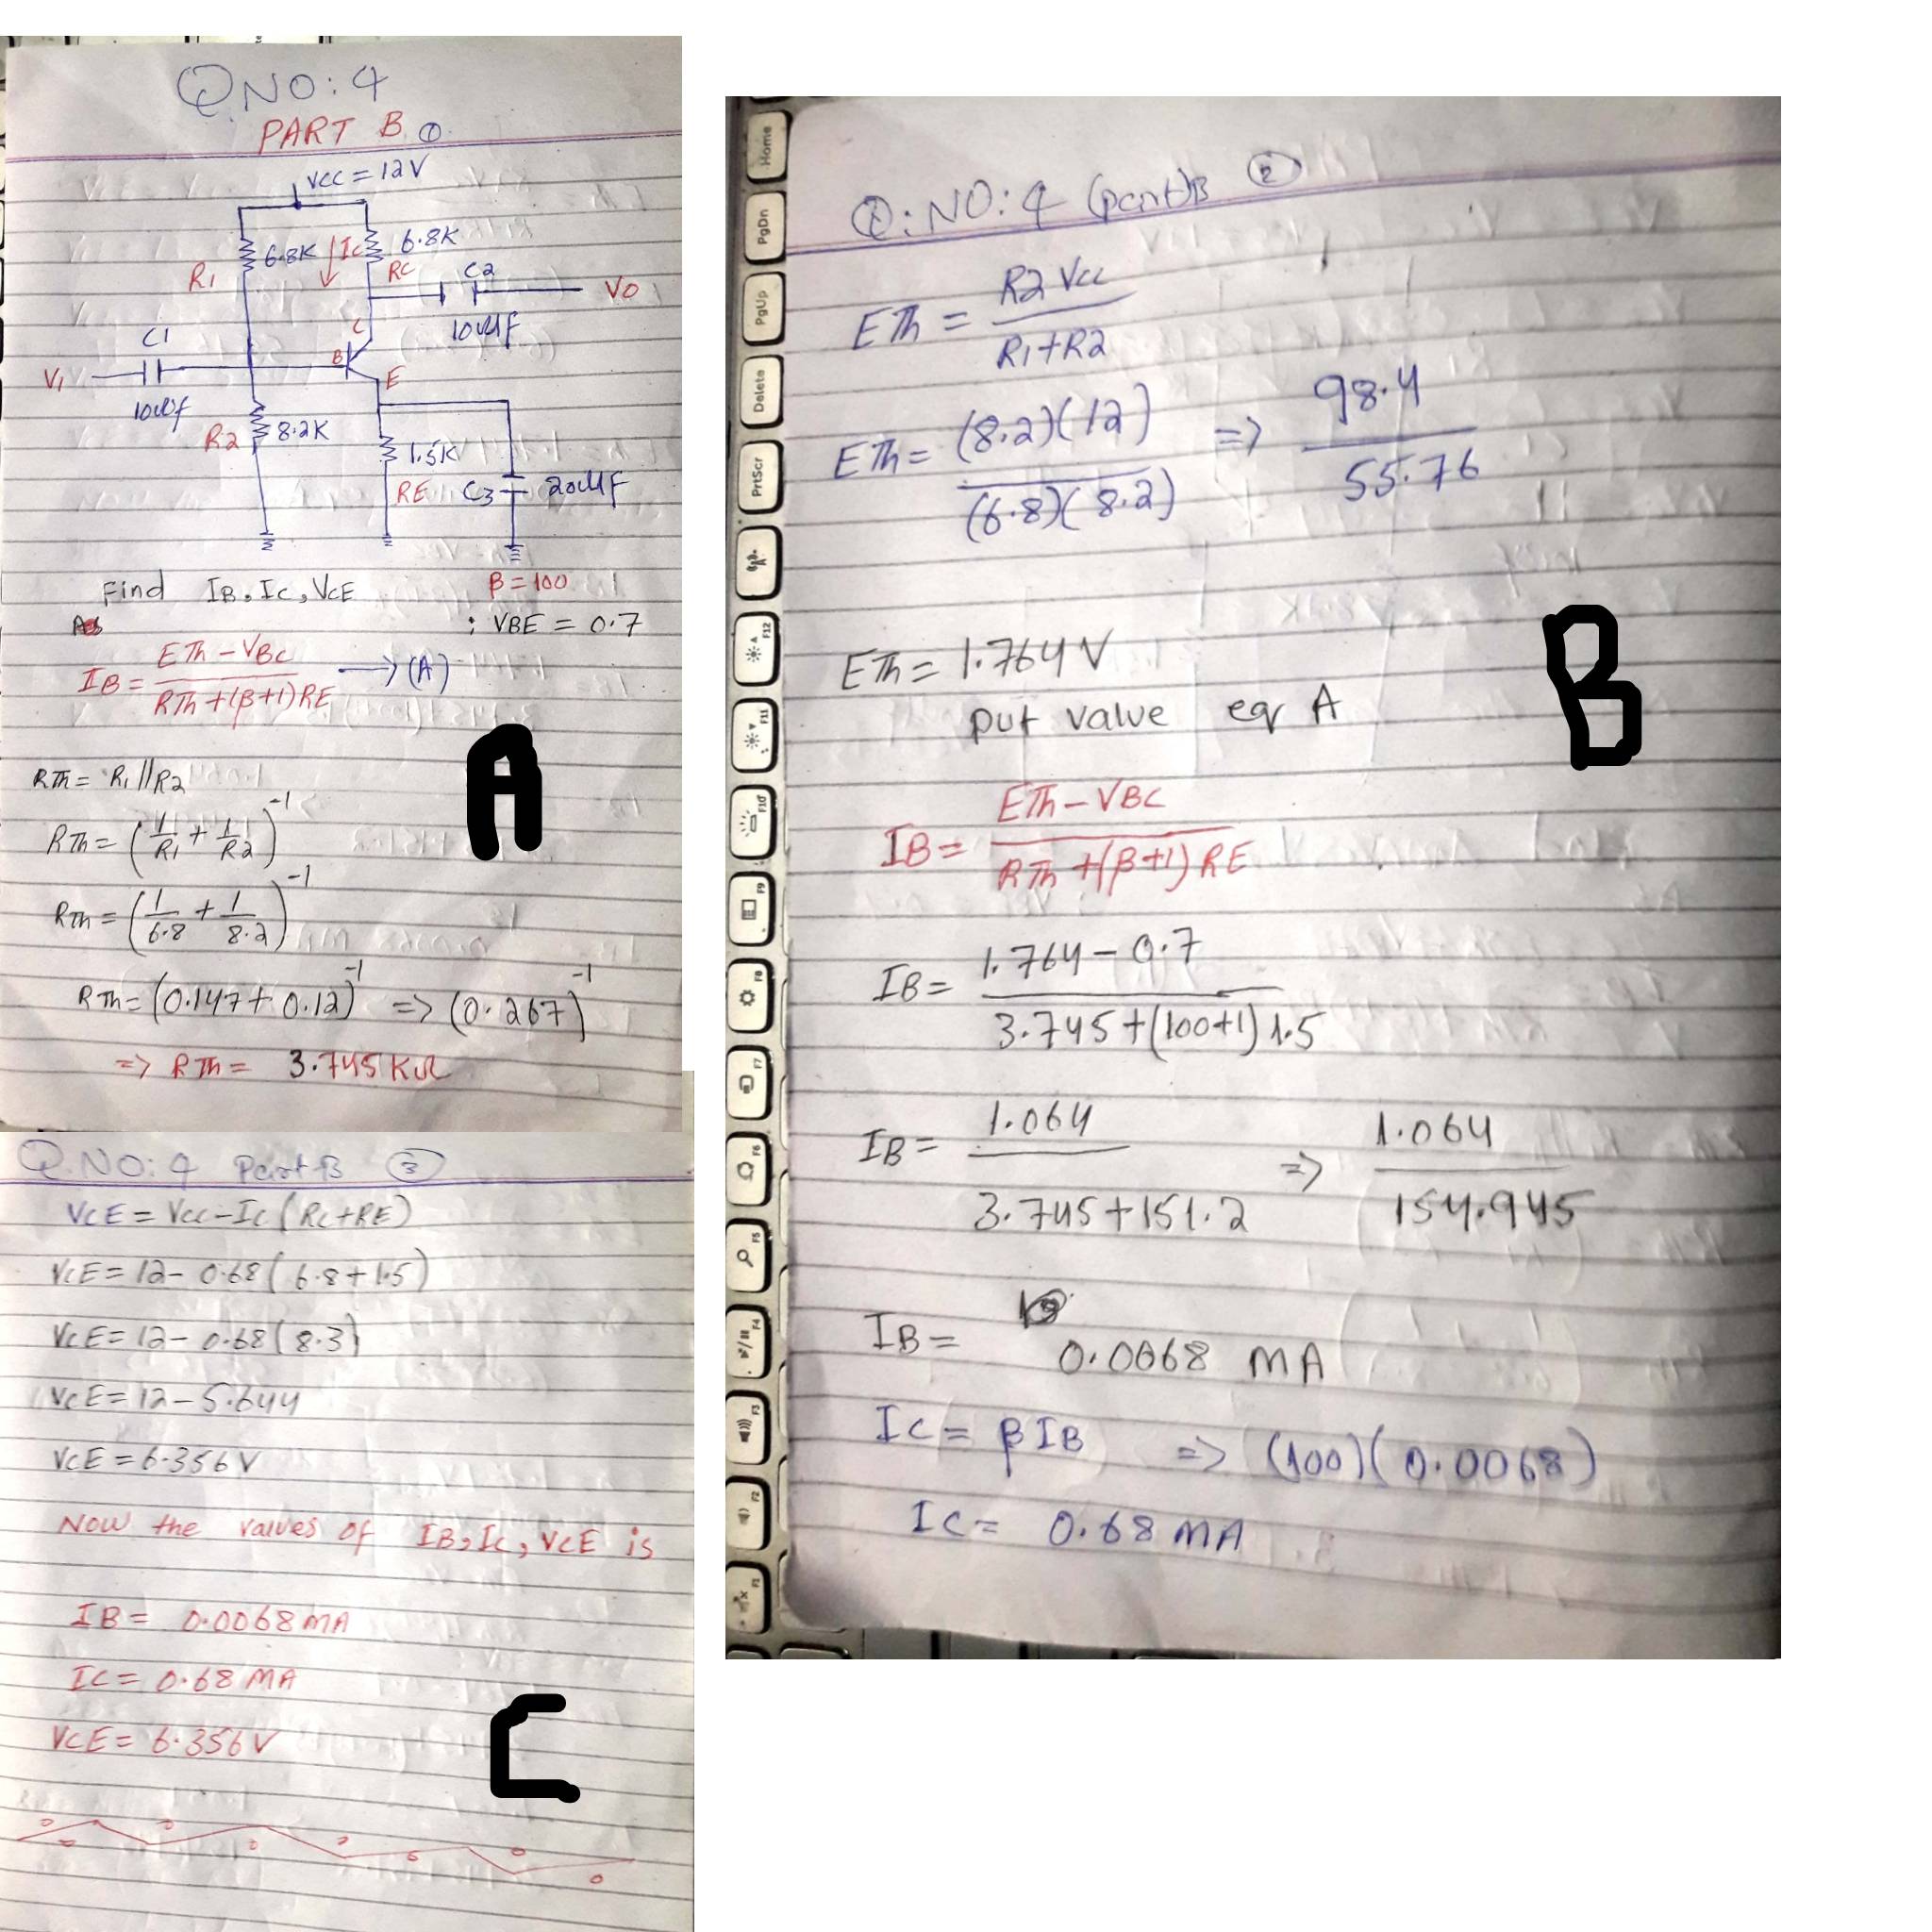 Q NO: 4
PART B ①
VCC = 12V
6.8K
IC
6.8K
R1
RC
C2
VO
10uf
C1
C
B
V1
E
10uf
R2
8.2K
1.5K
RE
C3
20uf
Find IB, IC, VCE
β = 100
As
; VBE = 0.7
IB = ETh - VBC / RTh + (β+1) RE → (A)
RTh = R1 // R2
RTh = (1/R1 + 1/R2)^-1
RTh = (1/6.8 + 1/8.2)^-1
RTh = (0.147 + 0.12)^-1 => (0.267)^-1
=> RTh = 3.745 KΩ
A
Q: NO: 4 (part) B ②
ETh = R2 VCC / R1+R2
ETh = (8.2)(12) / (6.8)(8.2) => 98.4 / 55.76
ETh = 1.764 V
put value eq A
IB = ETh - VBC / RTh + (β+1) RE
IB = 1.764 - 0.7 / 3.745 + (100+1) 1.5
IB = 1.064 / 3.745 + 151.2 => 1.064 / 154.945
IB = 0.0068 MA
IC = β IB => (100)(0.0068)
IC = 0.68 MA
B
Q. NO: 4 Part B ③
VCE = VCC - IC (RC + RE)
VCE = 12 - 0.68 (6.8 + 1.5)
VCE = 12 - 0.68 (8.3)
VCE = 12 - 5.644
VCE = 6.356 V
Now the values of IB, IC, VCE is
IB = 0.0068 MA
IC = 0.68 MA
VCE = 6.356 V
C
Home
PgDn
PgUp
Delete
PrtScr
F12
F11
F10
F9
F8
F7
F6
F5
F4
F3
F2
F1